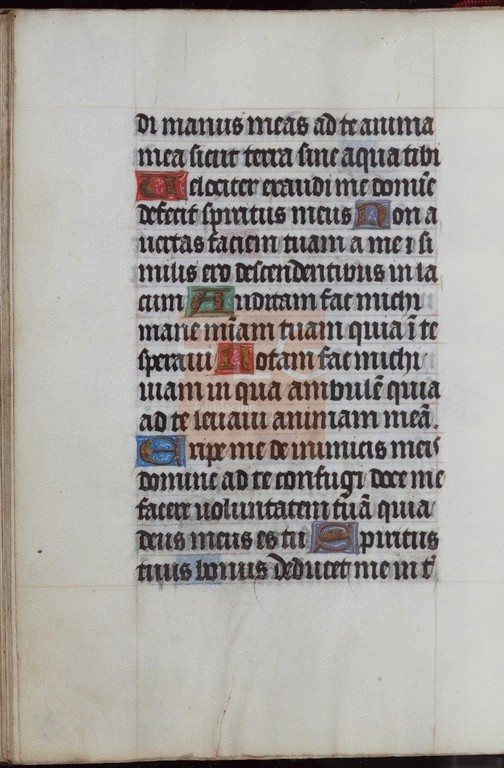 di manus meas ad te anima
mea sicut terra sine aqua tibi
Velociter exaudi me domīe
defecit spiritus meus Non a
uertas faciem tuam a me ⁊ si
milis ero descendentibus in la
cum Auditam fac michi
mane mīam tuam quia ī te
speraui Notam fac michi
uiam in qua ambulē quia
ad te leuaui animam meā.
Eripe me de inimicis meis
domine ad te confugi doce me
facere uoluntatem tuā quia
deus meus es tu Spiritus
tuus bonus deducet me in t̄